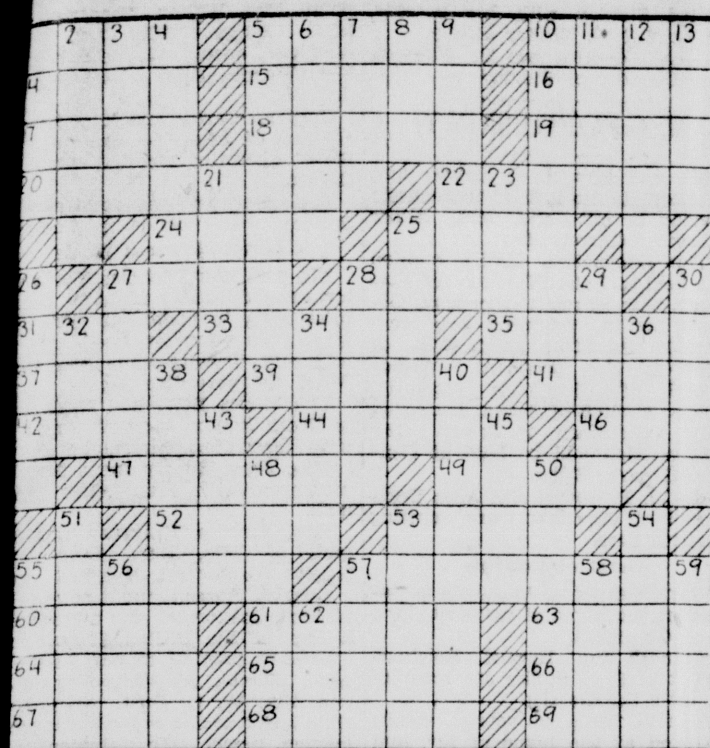 2 3 4 5 6 7 8 9 10 11. 12 13
4 15 16
7 18 19
20 21 22 23
24 25
26 27 28 29 30
31 32 33 34 35 36
37 38 39 40 41
42 43 44 45 46
47 48 49 50
51 52 53 54
55 56 57 58 59
60 61 62 63
64 65 66
67 68 69